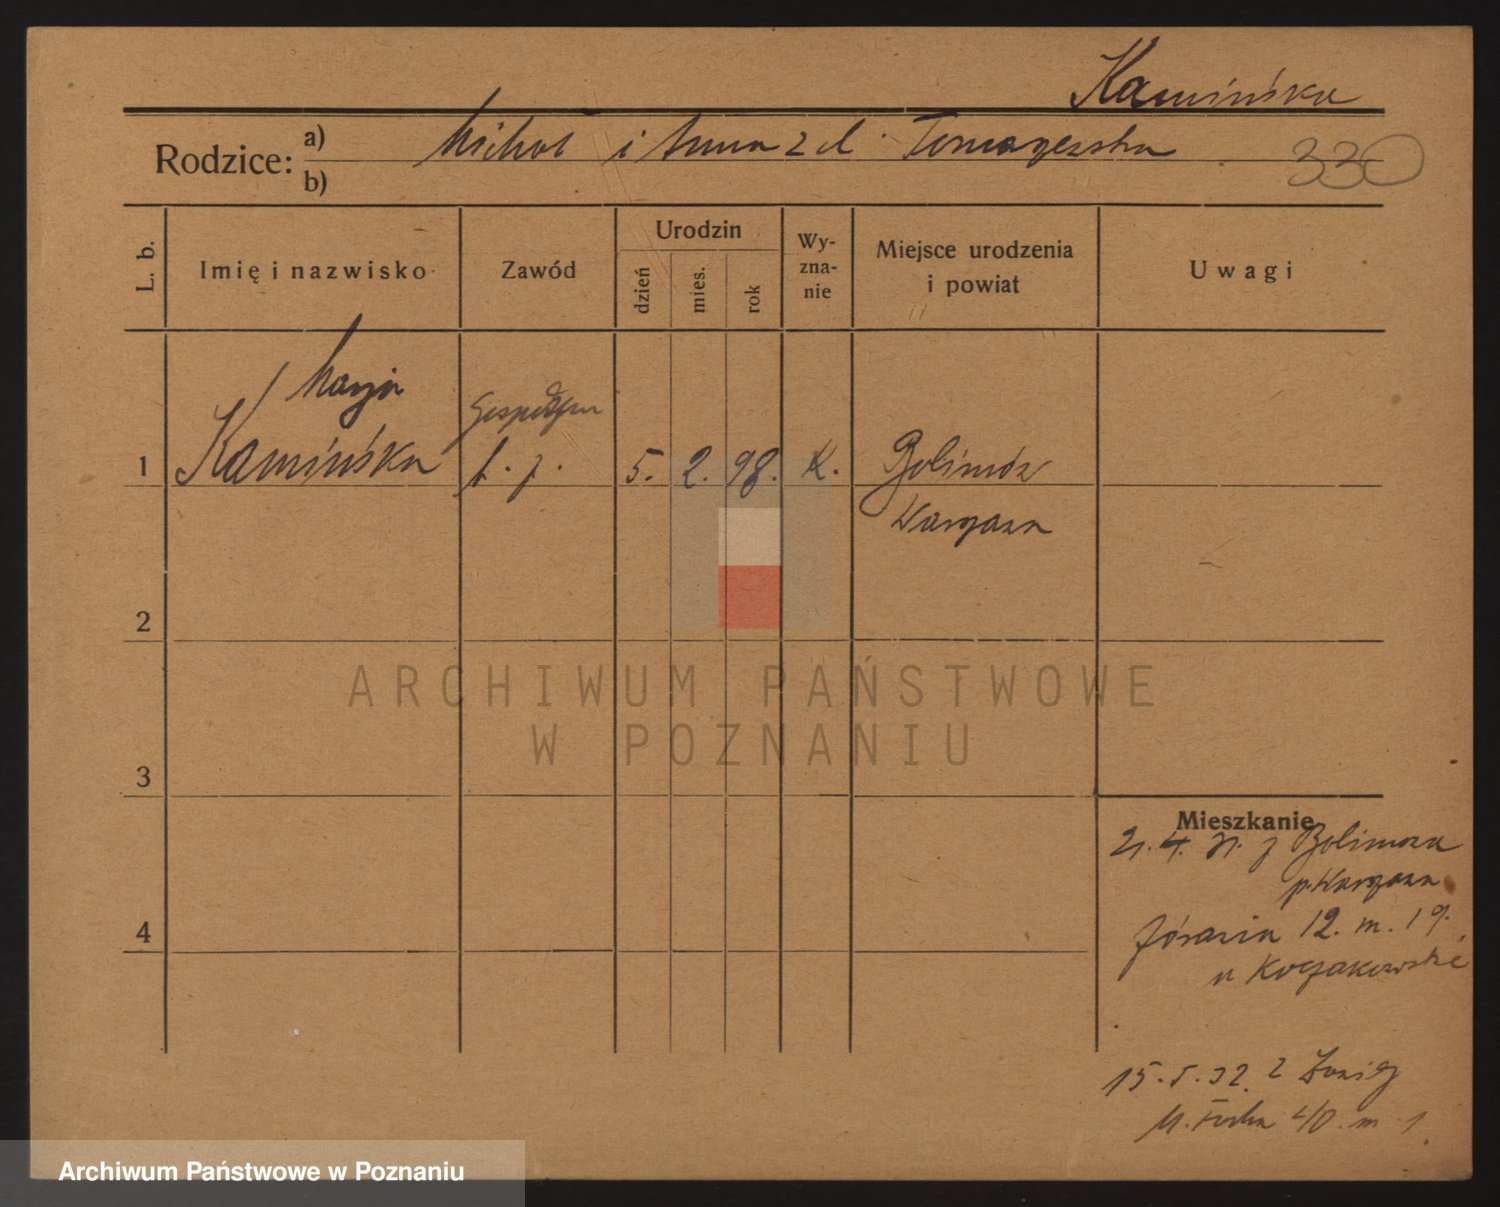 Kamińska
Rodzice: a) Michał i Anna z d. Tomaszewska
b)
330
L. b.
Imię i nazwisko
Zawód
Urodzin
dzień
mies.
rok
Wy-
zna-
nie
Miejsce urodzenia
i powiat
Uwagi
Marja
1 Kamińska 5. 2. 98. K. Bolimów
Warszawa
2
ARCHIWUM PAŃSTWOWE
W POZNANIU
3
Mieszkanie
21. 4. 31. z Bolimowa
p. Warszawa
12. m. 19.
u
4
15. 5. 32. z
M. Focha 40. m. 1.
Archiwum Państwowe w Poznaniu